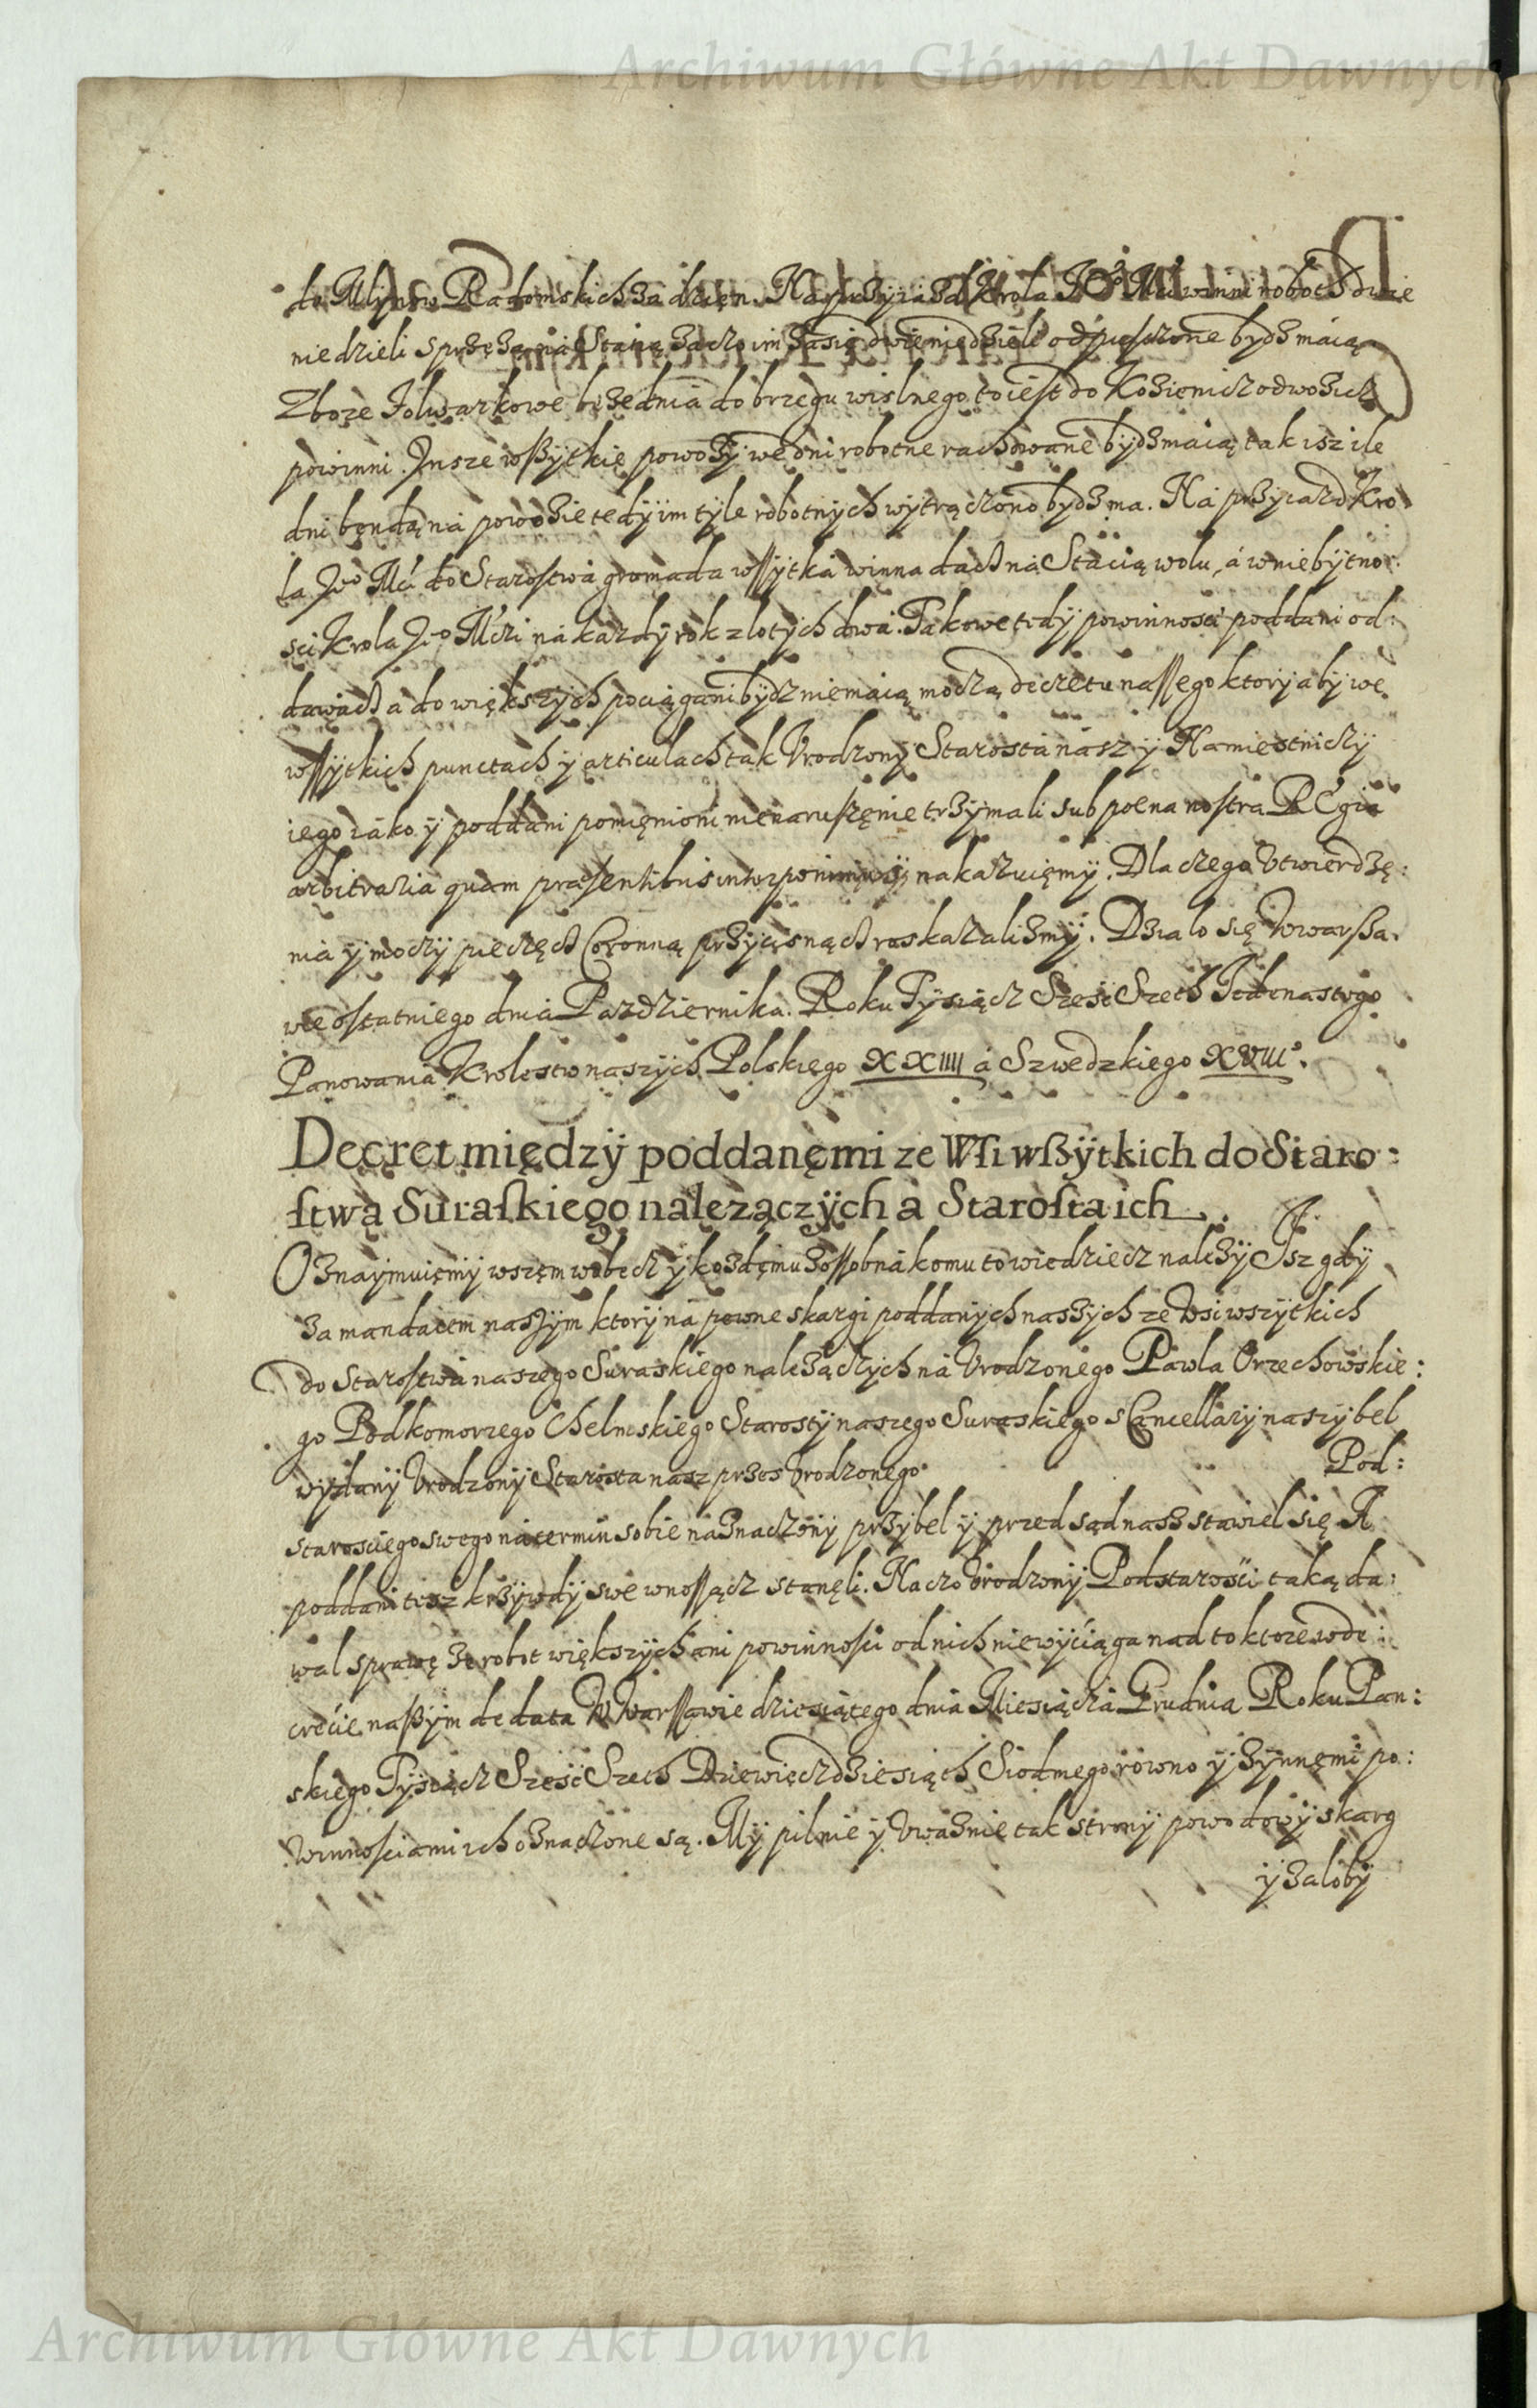 Archiwum Główne Akt Dawnych
do Mlynow Radomskich za dzięn. Na przyiazd Krola Jo Mci winni roboth dwie
niedzieli sprzęzą ná Stacią zaczo im zasię dwie niedzieli odpusczone bydz máią
Zboze folwarkowe bęzednia do brzegu wislnego to iest do Kozienicz odwozicz
powinni. Insze wßytkię powozy we dni robotne rachowane bydz máią tak isz ile
dni będą ná powozie tedy im tÿle robotnych wytrączono bydz ma. Ná przyiazd Kro
la Jeo Mći do Starostwá gromada wssytká winna dacz ná Stácią wolu, á w niebytno:
sci Krola Jeo Mćzi ná kazdy rok zlotych dwá. Takowe tedÿ powinnosci poddani od:
dawacz a do większych pociągani bydz niemáią moczą decretu nassego ktory aby we
wssytkich punctach ÿ articulach tak Urodzony Starostá nász ÿ Namiestniczy
iego iáko ÿ poddani pomięnioni nienaruszęnie trzymali sub poena nostra REgia
arbitraria quam præsentibus interponimus nakazuięmÿ. Dla czego Utwierdzę:
niá ÿ moczÿ pieczęcz Coronną przycisnącz roskazalizmÿ. Dzialo się w Warßa:
wie ostatniego dniá Pazdziernika. Roku Tysiącz Szesc Szeth Jedenastego
Panowaniá Krolestw naszych Polskiego XXIIII á Szwedzkiego XVIII°.
Decret międzÿ poddanęmi ze Wsi wßÿtkich do Staro:
stwa Suraskiego nalezączÿch a Starosta ich.
Oznaymuięmÿ wszem wobecz ÿ kozdęmu zossobná komu to wiedziecz nalezÿ Isz gdÿ
za mandatem naszÿm ktorÿ ná pewne skargi poddanych naszÿch ze Wsi wszytkich
do Starostwá naszego Suraskiego nalezączych ná Urodzonego Páwla Orzechowskie:
go Podkomorzego Chelmskiego Starostÿ naszego Suraskiego s Cancellarÿ naszÿ bel
wÿdanÿ Urodzonÿ Starosta nasz przes Urodzonego Pod:
starosciego swego ná termin sobie náznaczony przÿbel ÿ przed sąd nasz stawiel się A
poddani tesz krzywdÿ swe wnossącz stanęli. Naczo Urodzonÿ Podstarosci taką da:
wal sprawę ze robot większÿch ani powinnosci od nich niewÿciąga nad to ktore w de:
crecie naßÿm de data w Warssawie dziesiątego dniá Miesiączá Grudnia Roku Pan:
skiego Tÿsiącz Szesc Szeth Dziewięczdziesiąth Siodmego rowno ÿ z ÿnnęmi po:
winnosciami ich oznaczone są. Mÿ pilnie ÿ Uwaznie tak stronÿ powodowÿ skarg
ÿ zalobÿ
Archiwum Główne Akt Dawnych